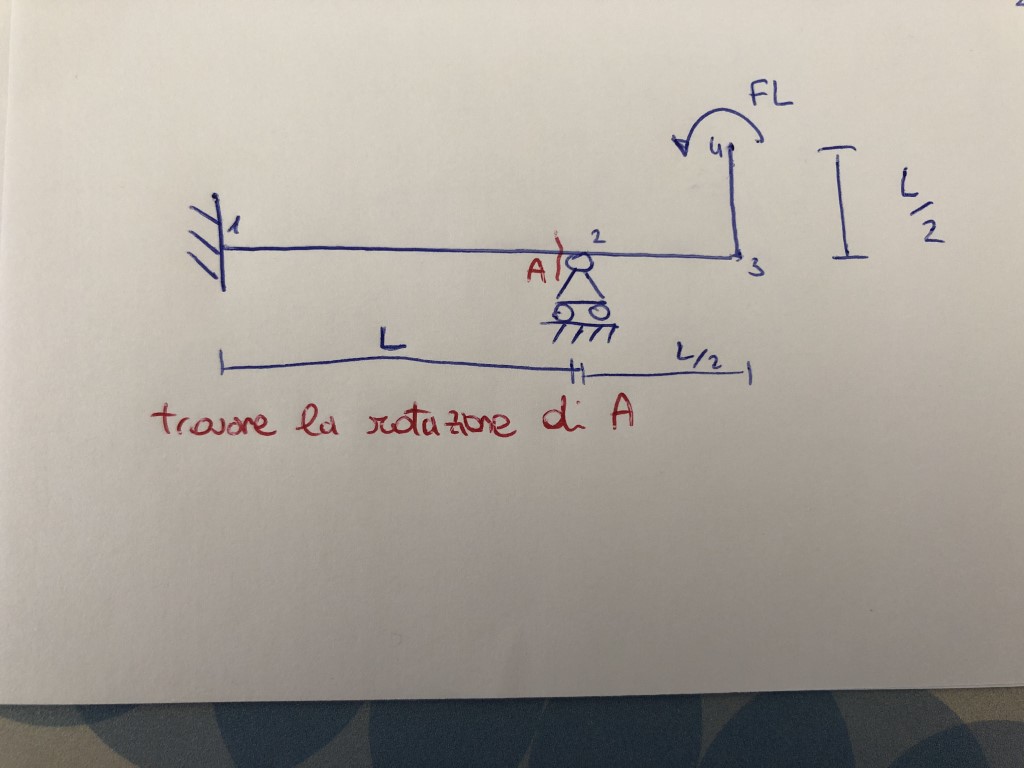 FL
4
1
A
2
3
L
L/2
L/2
trovare la rotazione di A